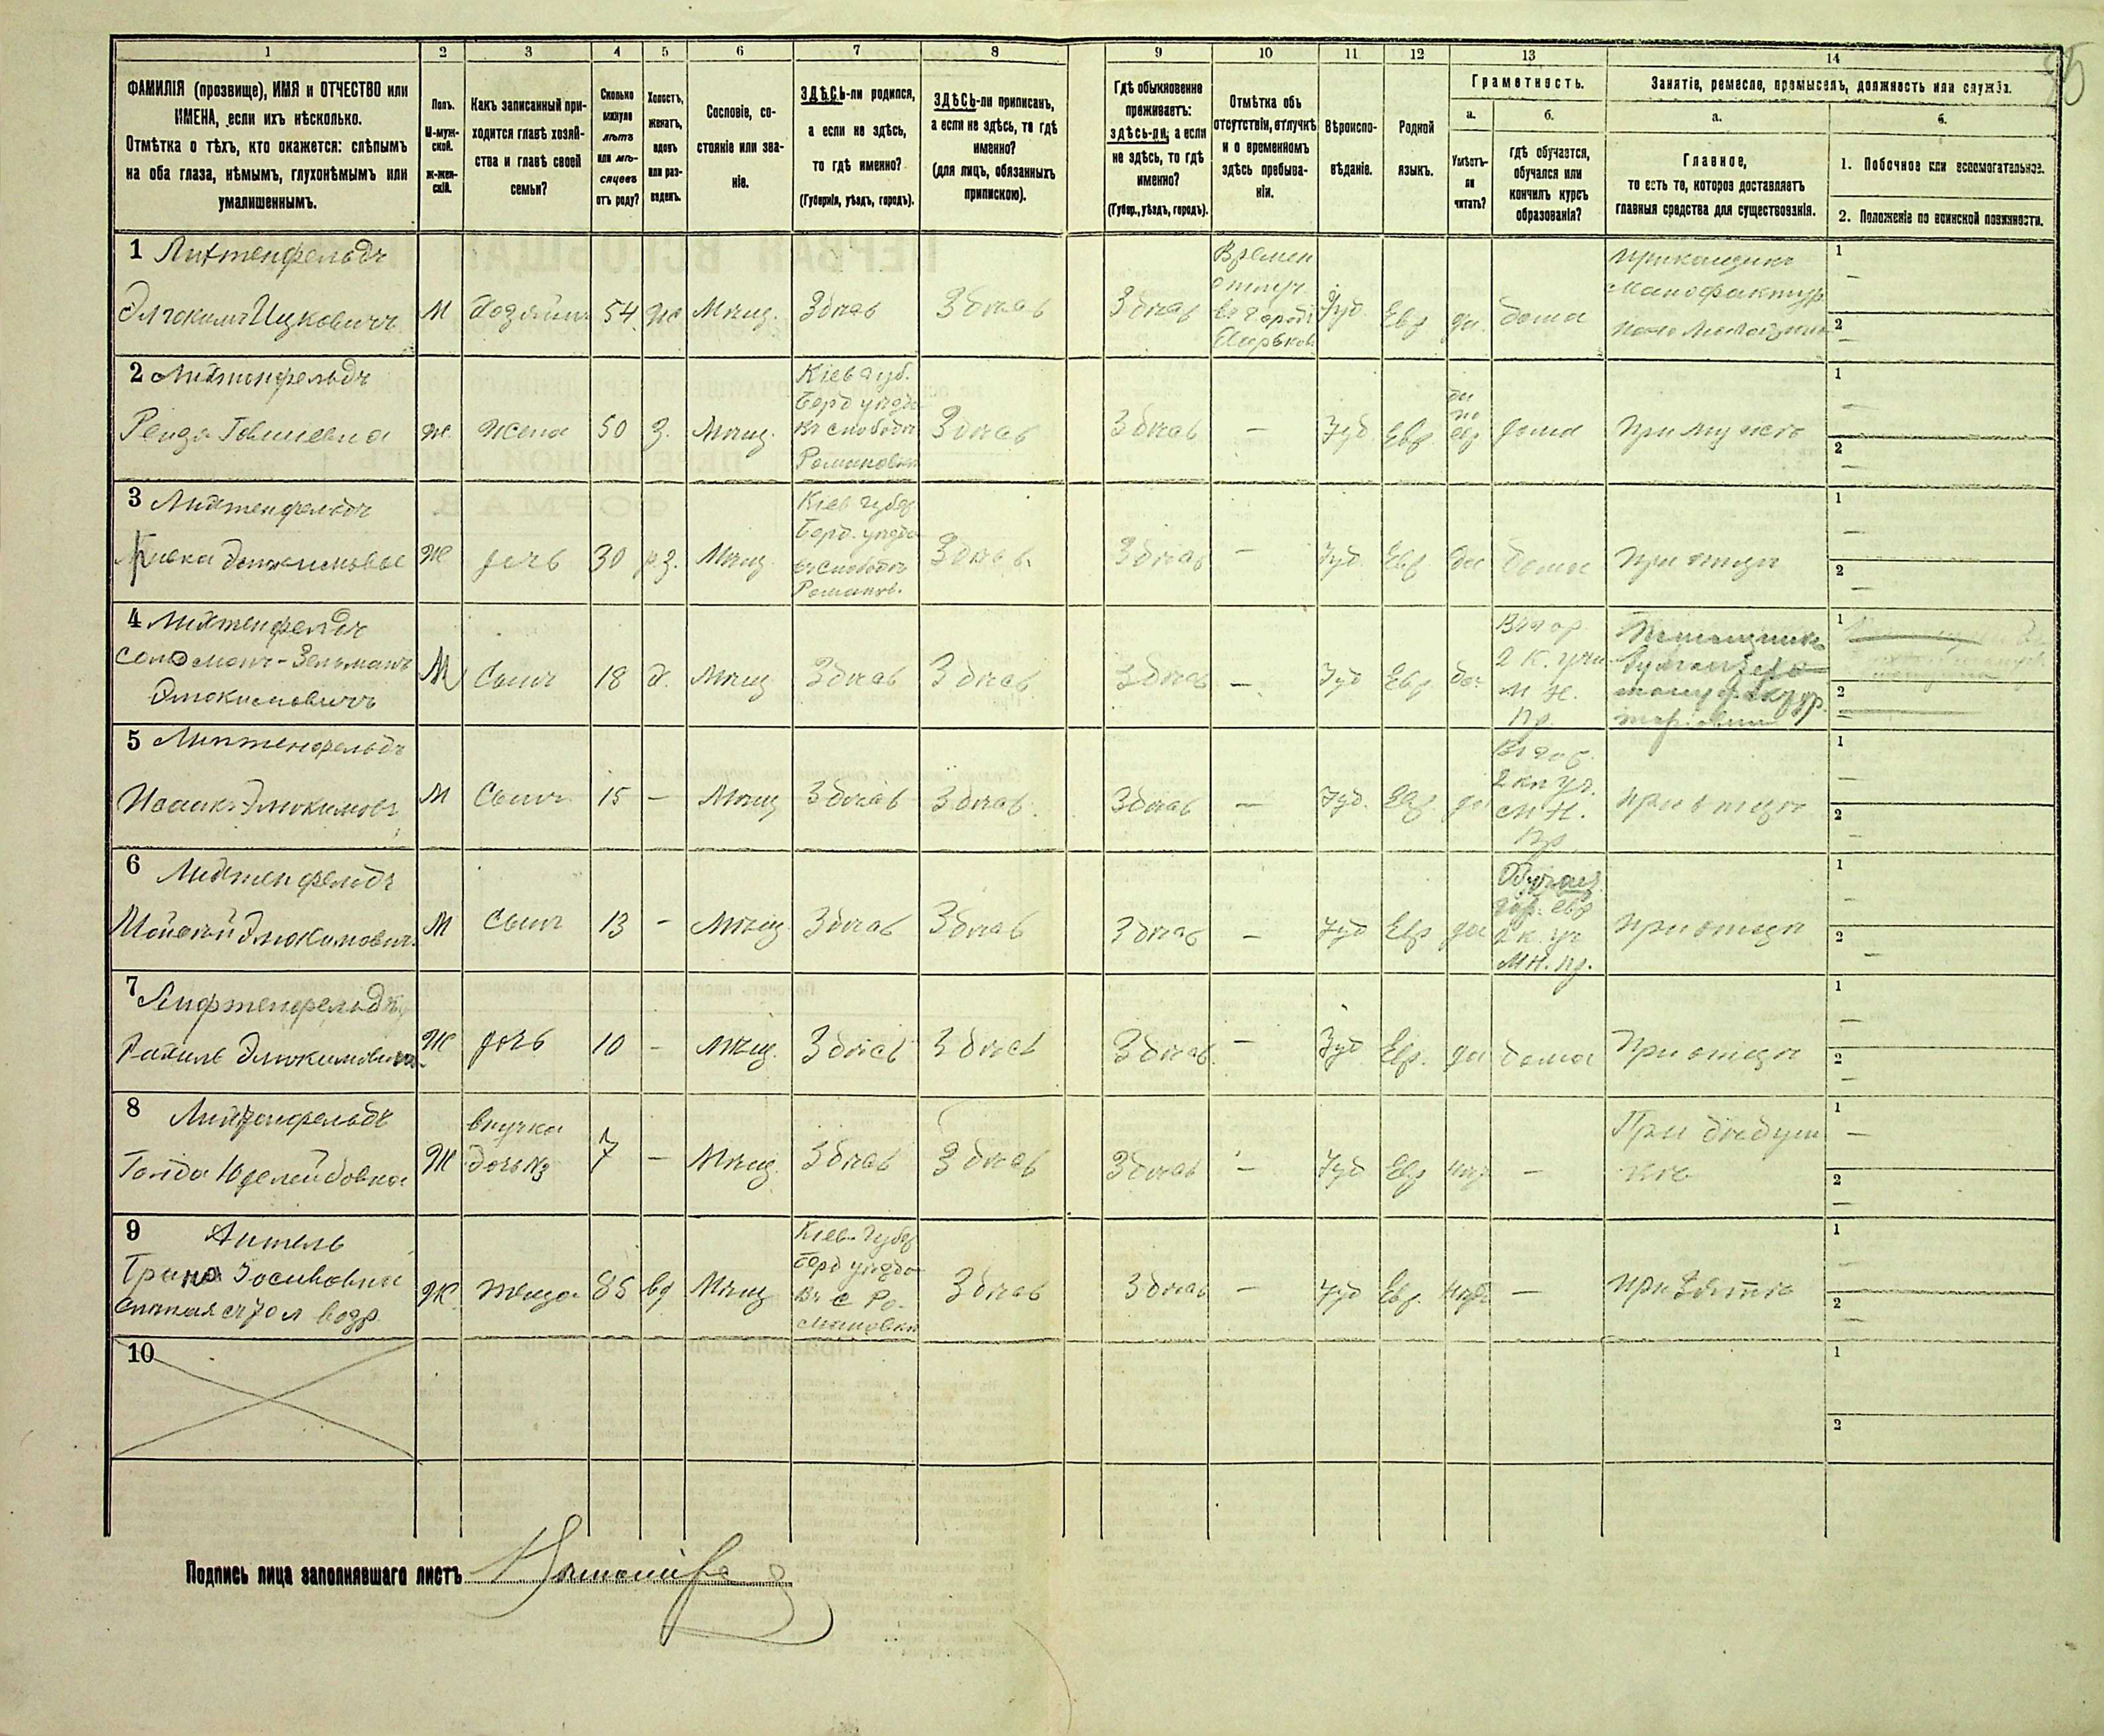 95
1 2 3 4 5 6 7 8 9 10 11 12 13 14
ФАМИЛІЯ (прозвище), ИМЯ и ОТЧЕСТВО или
ИМЕНА, если ихъ нѣсколько.
Отмѣтка о тѣхъ, кто окажется: слѣпымъ
на оба глаза, нѣмымъ, глухонѣмымъ или
умалишеннымъ.
Полъ.
М-муж-
ской.
ж-жен-
скій.
Какъ записанный при-
ходится главѣ хозяй-
ства и главѣ своей
семьи?
Сколько
минуло
лѣтъ
или мѣ-
сяцевъ
отъ роду?
Холостъ,
женатъ,
вдовъ
или раз-
веденъ.
Сословіе, со-
стояніе или зва-
ніе.
ЗДѢСЬ-ли родился,
а если не здѣсь,
то гдѣ именно?
(Губернія, уѣздъ, городъ).
ЗДѢСЬ-ли приписанъ,
а если не здѣсь, то гдѣ
именно?
(для лицъ, обязанныхъ
припискою).
Гдѣ обыкновенно
проживаетъ:
здѣсь-ли, а если
не здѣсь, то гдѣ
именно?
(Губер., уѣздъ, городъ).
Отмѣтка объ
отсутствіи, отлучкѣ
и о временномъ
здѣсь пребыва-
ніи.
Вѣроиспо-
вѣданіе.
Родной
языкъ.
Грамотность.
а.
Умѣетъ-
ли
читать?
б.
гдѣ обучается,
обучался или
кончилъ курсъ
образованія?
Занятіе, ремесло, промыселъ, должность или служба.
а.
Главное,
то есть то, которое доставляетъ
главныя средства для существованія.
б.
1. Побочное или вспомогательное.
2. Положеніе по воинской повинности.
1 Лихтенфельдъ
Элюкимъ Ицковичъ
М
Хозяинъ
54
же
Мѣщ.
Здѣсь
Здѣсь
Здѣсь
Времен
отлуч.
въ городѣ
Харьковѣ
Іуд.
Евр
да
дома
прикащикъ
Манофактур
1 —
2 —
2 Лихтенфельдъ
Ж.
Жена
50
з.
Мѣщ.
Кіев губ.
Берд уѣзда
въ слободѣ
Романовкѣ
Здѣсь
Здѣсь
—
Іуд
Евр.
да
по
евр
дома
При мужѣ
1 —
2 —
3 Лихтенфельдъ
Ж
дочь
30
рз.
Мѣщ
Кіев губер
Берд. уѣзда
въ слободѣ
Романов.
Здѣсь.
Здѣсь
—
Іуд.
Евр.
да
дома
При отцѣ
1 —
2 —
4 Лихтенфельдъ
Соломонъ-Зельманъ
Элюкимовичъ
М
Сынъ
18
х.
Мѣщ
Здѣсь
Здѣсь
Здѣсь
—
Іуд
Евр
да
Въ гор.
2 к. учи
М Н.
Пр.
1
2
5 Лихтенфельдъ
Исаакъ Элюкимовъ
М
Сынъ
15
—
Мѣщ
Здѣсь
Здѣсь.
Здѣсь
—
Іуд.
Евр.
да
Въ гор.
2 кл уч.
М Н.
Пр
при отцѣ
1 —
2 —
6 Лихтенфельдъ
Мойсей Элюкимович.
М
Сынъ
13
—
Мѣщ
Здѣсь
Здѣсь
Здѣсь
—
Іуд
Евр
да
Обучает.
гор. евр
2 к. уч
М Н. пр.
При отцѣ
1 —
2 —
7 Лифтенфельдъ
Рахиль Элюкимовна
Ж
дочь
10
—
Мѣщ.
Здѣсь
Здѣсь
Здѣсь.
—
Іуд
Евр.
да
дома
При отцѣ
1 —
2 —
8
Ж
внучка
дочь №3
7
—
Мѣщ.
Здѣсь
Здѣсь
Здѣсь
—
Іуд
Евр
нѣт
—
При дѣдуш
кѣ
1 —
2 —
9
Ж.
теща
85
вд
Мѣщ
Кіев. Губер
Берд уѣзда
Въ с Ро-
мановки
Здѣсь
Здѣсь
—
Іуд
Евр.
нѣтъ
—
при зятѣ
1 —
2 —
10
1
2
Подпись лица заполнявшаго листъ